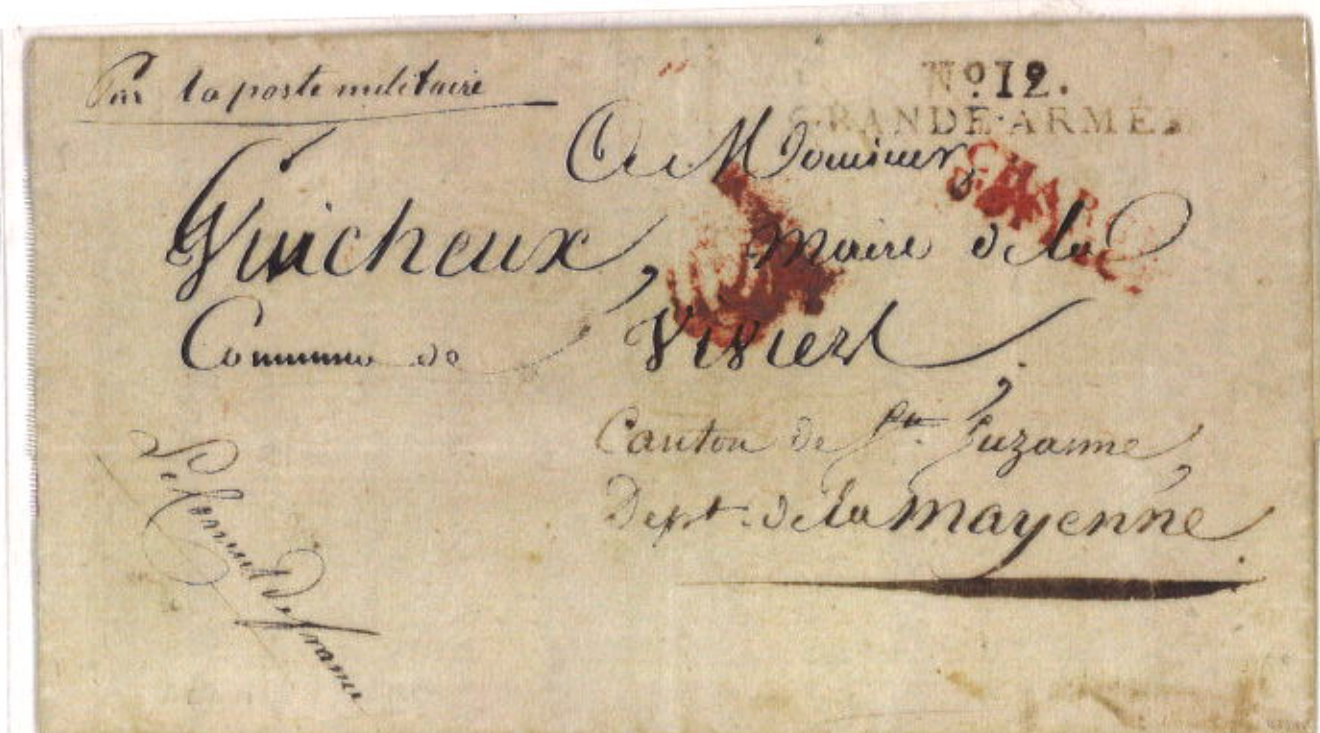 Par la poste militaire
No. 12.
GRANDE-ARMÉE
A Monsieur
CHARGÉ
Guicheux, Maire de la
Commune de Viviers,
Canton de Ste. Suzanne,
Dept. de la Mayenne.
de france